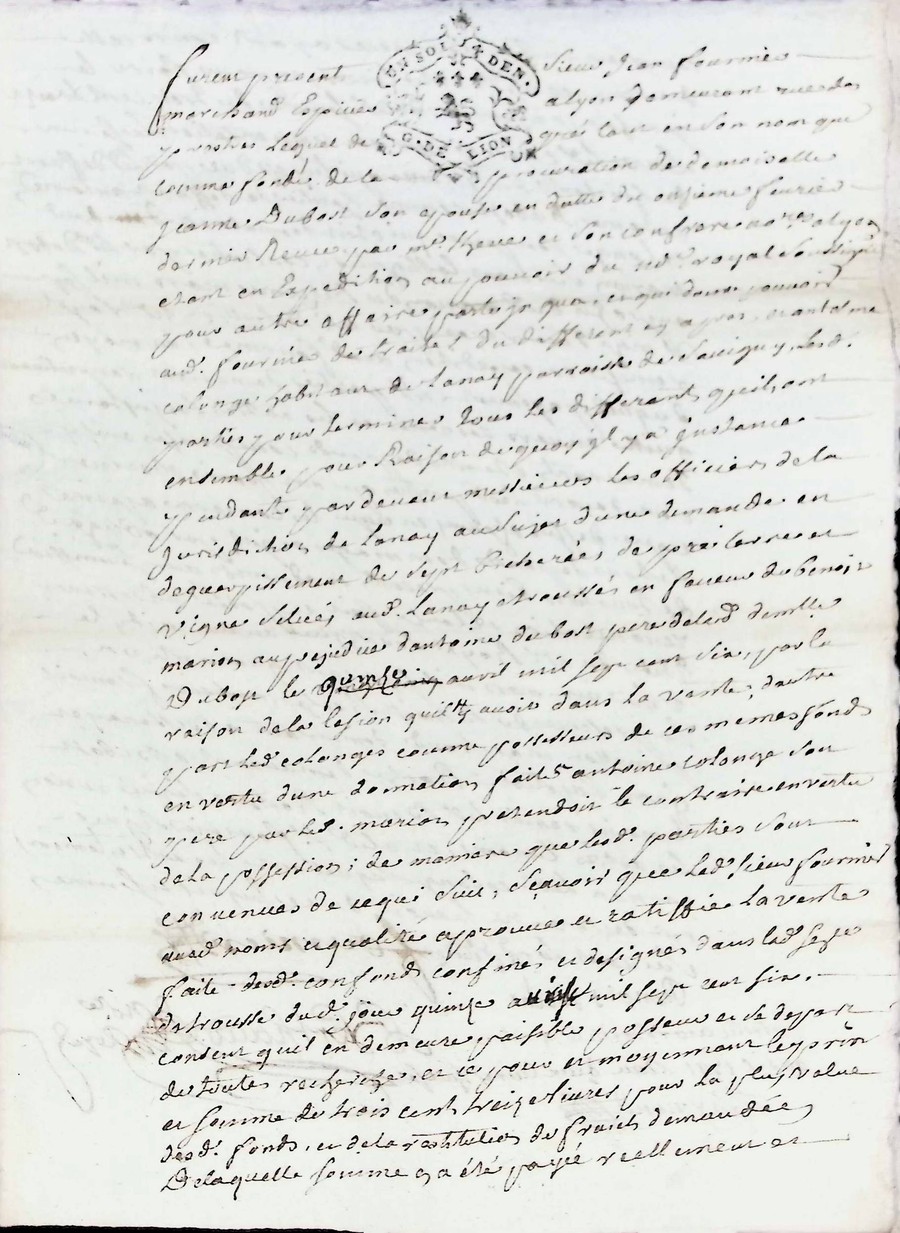 furent present sieur Jean fournier
UN SOL 4 DEN.
G. DE LION
marchand Epicier a lyon demeurant rue des
prestres lequel de gré tant en son nom que
comme fondé de la procuration de demoiselle
jeanne Dubost son epouse en datte du onzieme feurier
dernier Receue par me et son confrere nores a lyon
etant en Expedition au pouvoir du nore royal soussigné
pour autre affaire partijquae, et qui donne pouvoir
aud. fournier de traiter du different cy apres, et antoine
colonge habitant de Lanay parroisse de Savigny, lesd.
parties pour terminer tous les differents queils ont
ensemble pour Raison de quoy jl y a jnstance
pendante pardevant messieurs les officiers de la
jurisdiction de Lanay au sujet d'une demande en
deguerpissement de sept bicherées de pré terre et
vigne situés aud. Lanay etroussés en faveur de benoit
marion au prejudice dantoine dubost pere delad. demlle
Dubost le quinze avril mil sept cent six, par la
raison de la lesion quil y avoit dans la vente, dautre
part led. colonges comme possesseurs de ces memes fonds
en vertu dune donnation faite a antoine colonge son
pere par led. marion pretendoit le contraire en vertu
de la possession; de maniere que lesd. parties sont
convenues de ce qui suit, sçavoir que led. sieur fournier
auxd. noms et qualité aprouve et ratiffie la vente
faite desd. fonds confinés et designés dans lad. sept
detrousse dud. jour quinze avril mil sept cent six.
consent quil en demeure paisible posseur et se depart
de toutes recherche, et ce pour et moyennant le prix
et somme de trois cent treize livres pour la plus value
desd. fonds, et de la restitution de fruits demandée
Delaquelle somme en a été payé reellement et